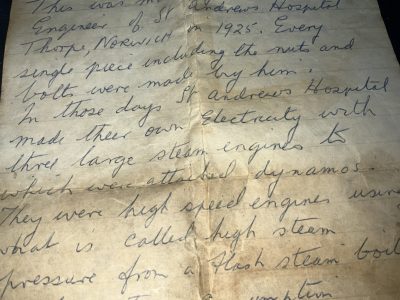 This was m St Andrews Hospital
Engineer of St Andrews Hospital
Thorpe, NORWICH in 1925. Every
single piece including the nuts and
bolts were made by him.
In those days St andrews Hospital
made their own Electricity with
three large steam engines to
which were attached dynamos.
They were high speed engines using
what is called high steam
pressure from a flash steam boil